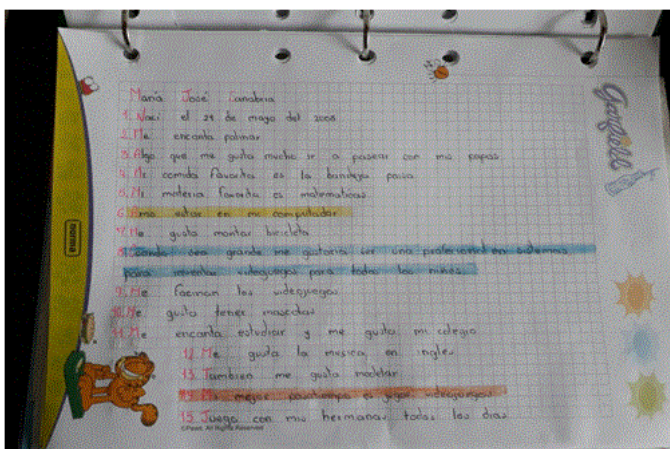 María José Sanabria
1. Nací el 29 de mayo del 2005
2. Me encanta patinar
3. Algo que me gusta mucho ir a pasear con mis papas
4. Mi comida favorita es la bandeja paisa
5. Mi materia favorita es matematicas
6. Amo estar en mi computador
7. Me gusta montar bicicleta
8. Cuando sea grande me gustaria ser una profesional en sistemas
para inventar videojuegos para todos los niños
9. Me facinan los videojuegos
10. Me gusta tener mascotas
11. Me encanta estudiar y me gusta mi colegio
12. Me gusta la musica en ingles
13. Tambien me gusta modelar
14. Mi mejor pasatiempo es jugar videojuegos
15. Juego con mis hermanas todos los dias
Garfield
norma
©Paws. All Rights Reserved